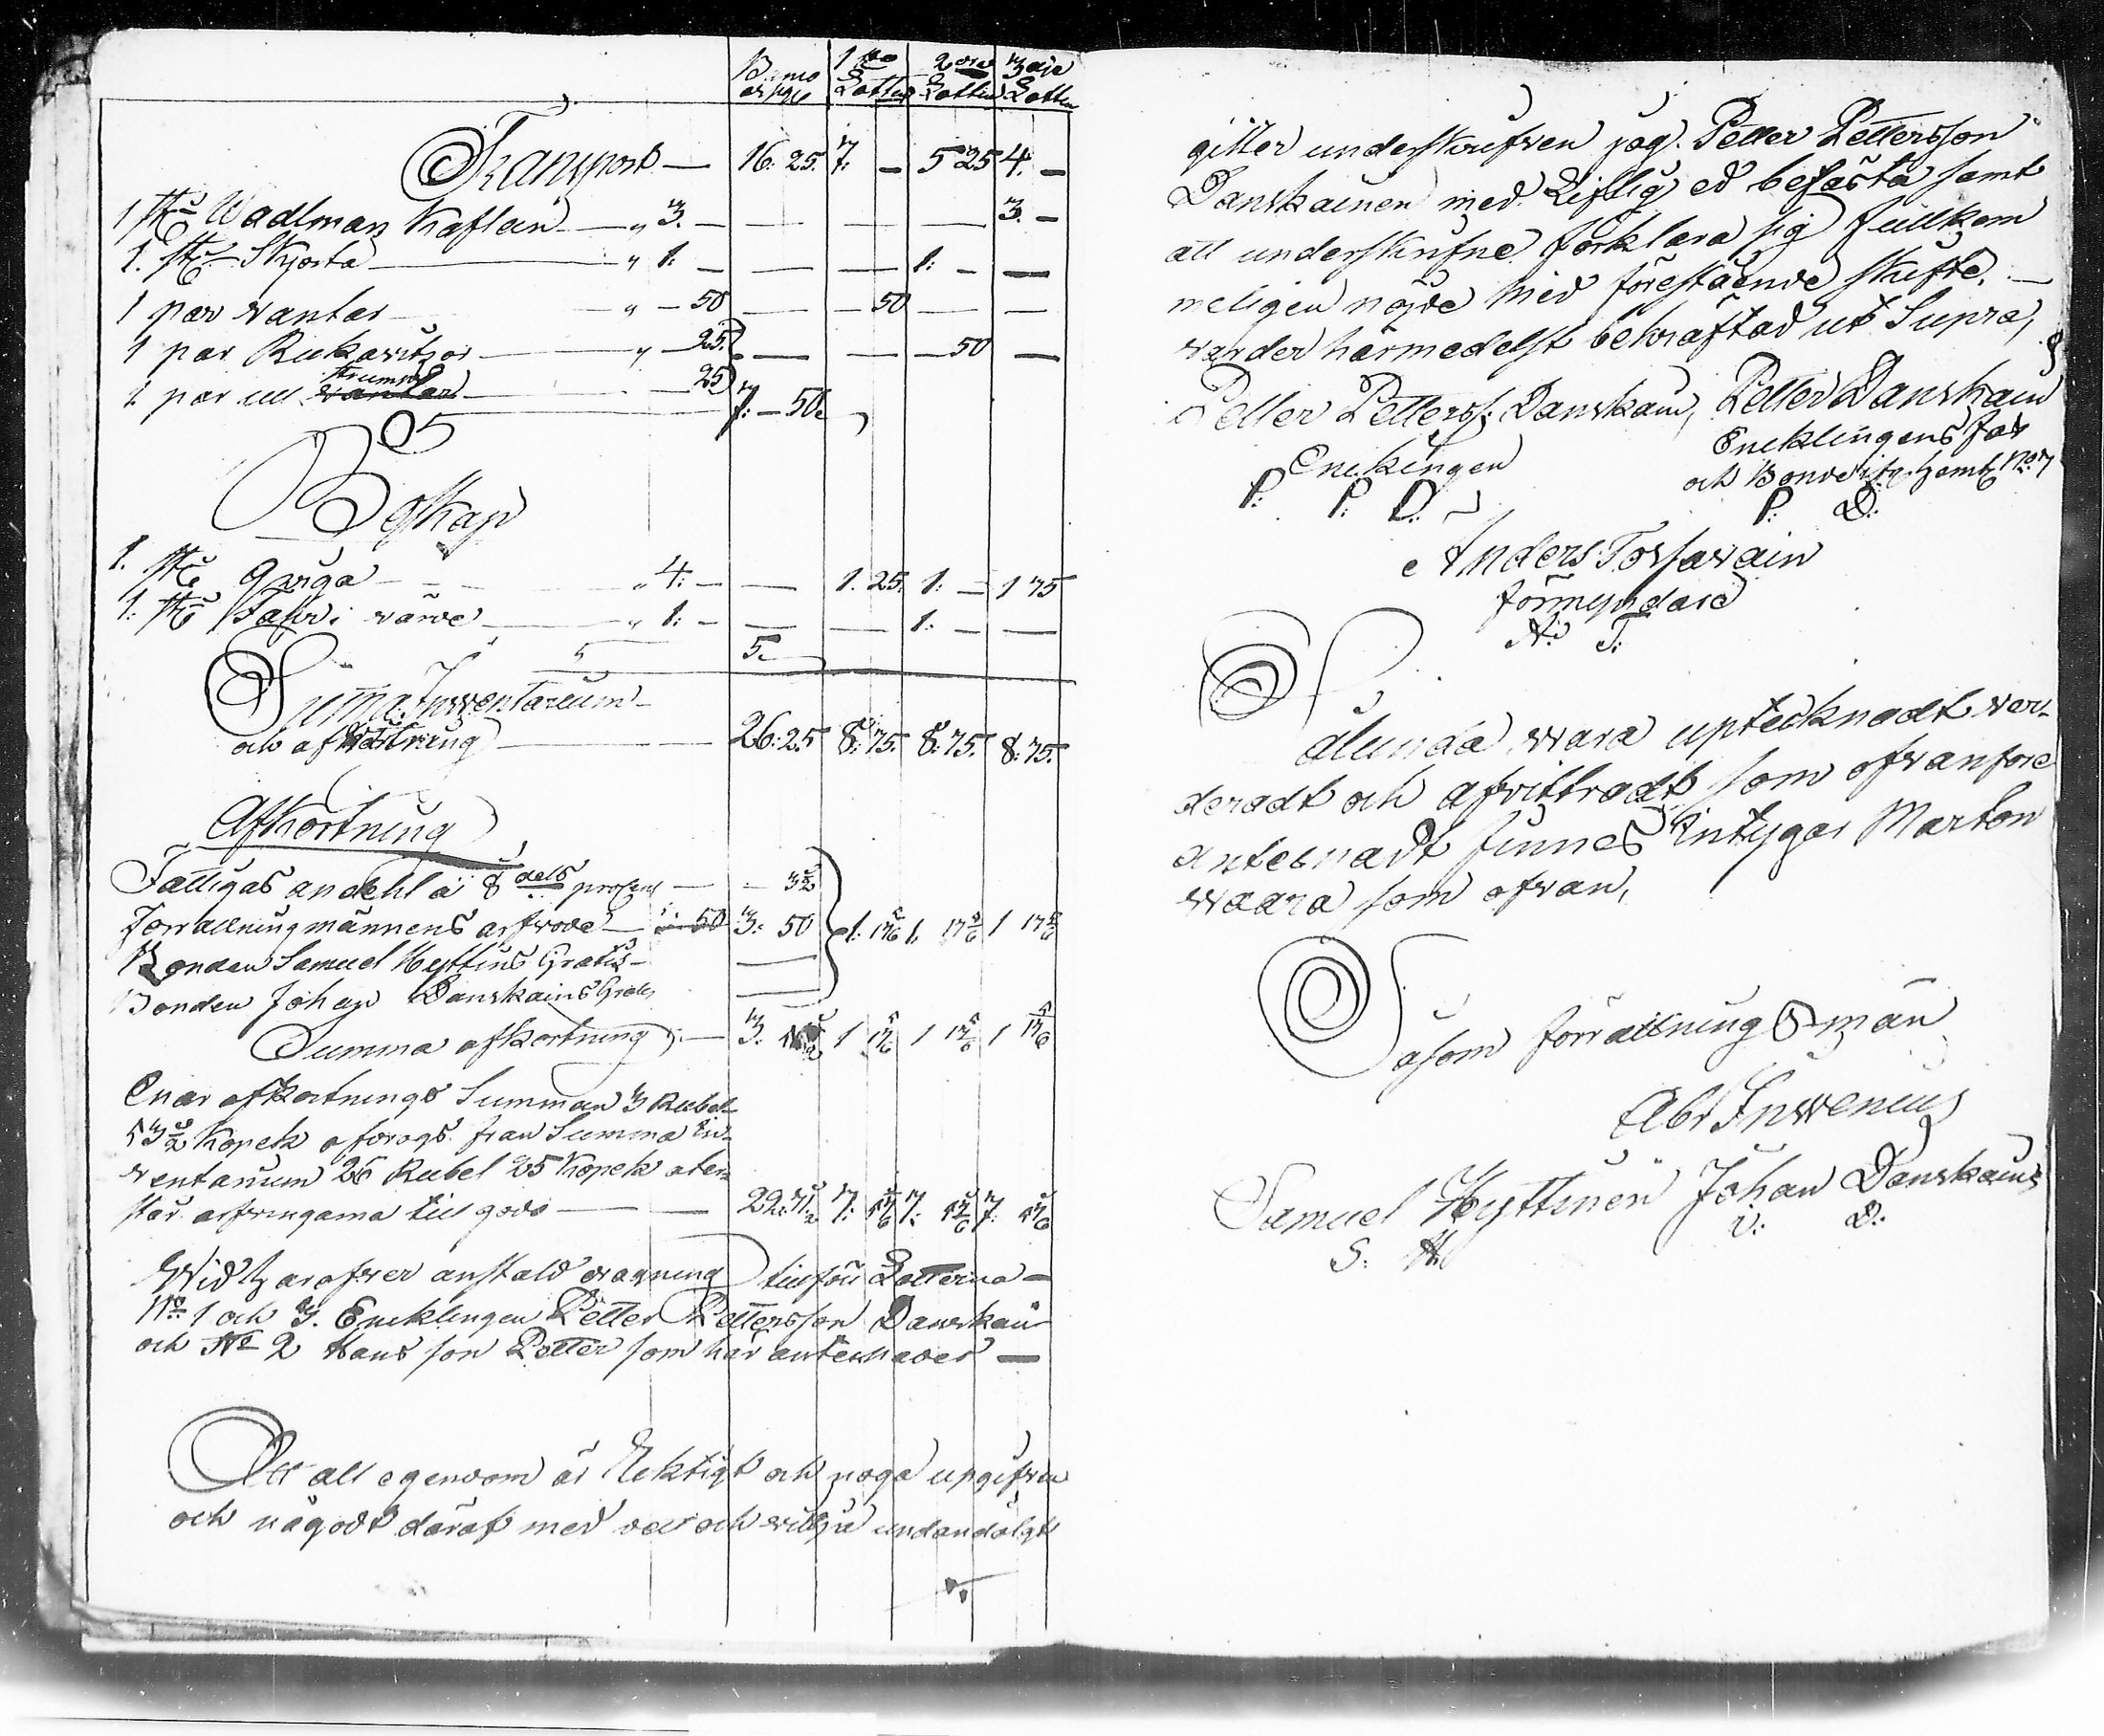 1sta 2dra 3dje
Lotten Lotten Lotten
Transport — 16: 25. 7: — 5 25 4. —
1 st: Wadlman Kaftan — " 3. — — — — 3. —
1. st: Skjorta — " 1: — — — 1: — —
1 par vantar — " — 50 — — 50 — —
1 par Rukavitzor — " — 25. — — — 50 —
strumpor
1 par ull vantar — — 25
7: — 50.
Boskap
1. st: qviga — " 4: — — 1. 25. 1: — 1 75
1: st: i värde — " 1: — — — 1: — —
5 5.
Suma Inventarium
och afvittring — 26: 25 8: 75. 8: 75. 8: 75.
Afkortning
Fattigas andehl á 8 dels prosent — — 3 1/2
Förrattningmännens arfvode — 50 3: 50 1: 17 5/6 1. 17 5/6 1 17 5/6
Bonden Samuel Hyttins Gratis —
Bonden Johan Danskains Gratis
Summa afkortning — 3. 1 17 5/6 1 17 5/6 1 17 5/6
Enär afkortnings Summan 3 Rubel
53 1/2 Kopek afdrags från Summa In-
ventarium 26 Rubel 25 Kopek åter-
står arfvingarna till godo — 22: 71 1/2 7: 7: 7:
Wid harofver anstald dragning tillföll Lotterna —
No 1 och 3. Encklingen Petter Pettersson Danskain
och No 2 Hans son Petter som här antecknades —
Att all egendom är Ricktigt och noga upgifven
och någodt däraf med vett och vilja undandolgt
gitter underskrifven jag Petter Pettersson
Danskainen med Liflig ed befästa samt
att underskrifne förklara sig fullkom
meligen nöjde med förestående skifte. —
varder härmedelst bekräftad ut Supra,
Petter Petterss: Danskain, Petter Danskain
Encklingen Encklingens far
och Bonde No 7
P: P: D: P: D:
Anders Torsavain
förmyndare
A: T:
Sålunda vara uptecknadt vär-
deradt och afvittradt som ofvanföre
antecknadt finnes intygar Marton
waara som ofvan,
Såsom förrättnings män
Abr Inwenius
Samuel Hyttinen Johan Danskain
S: H: J: D: